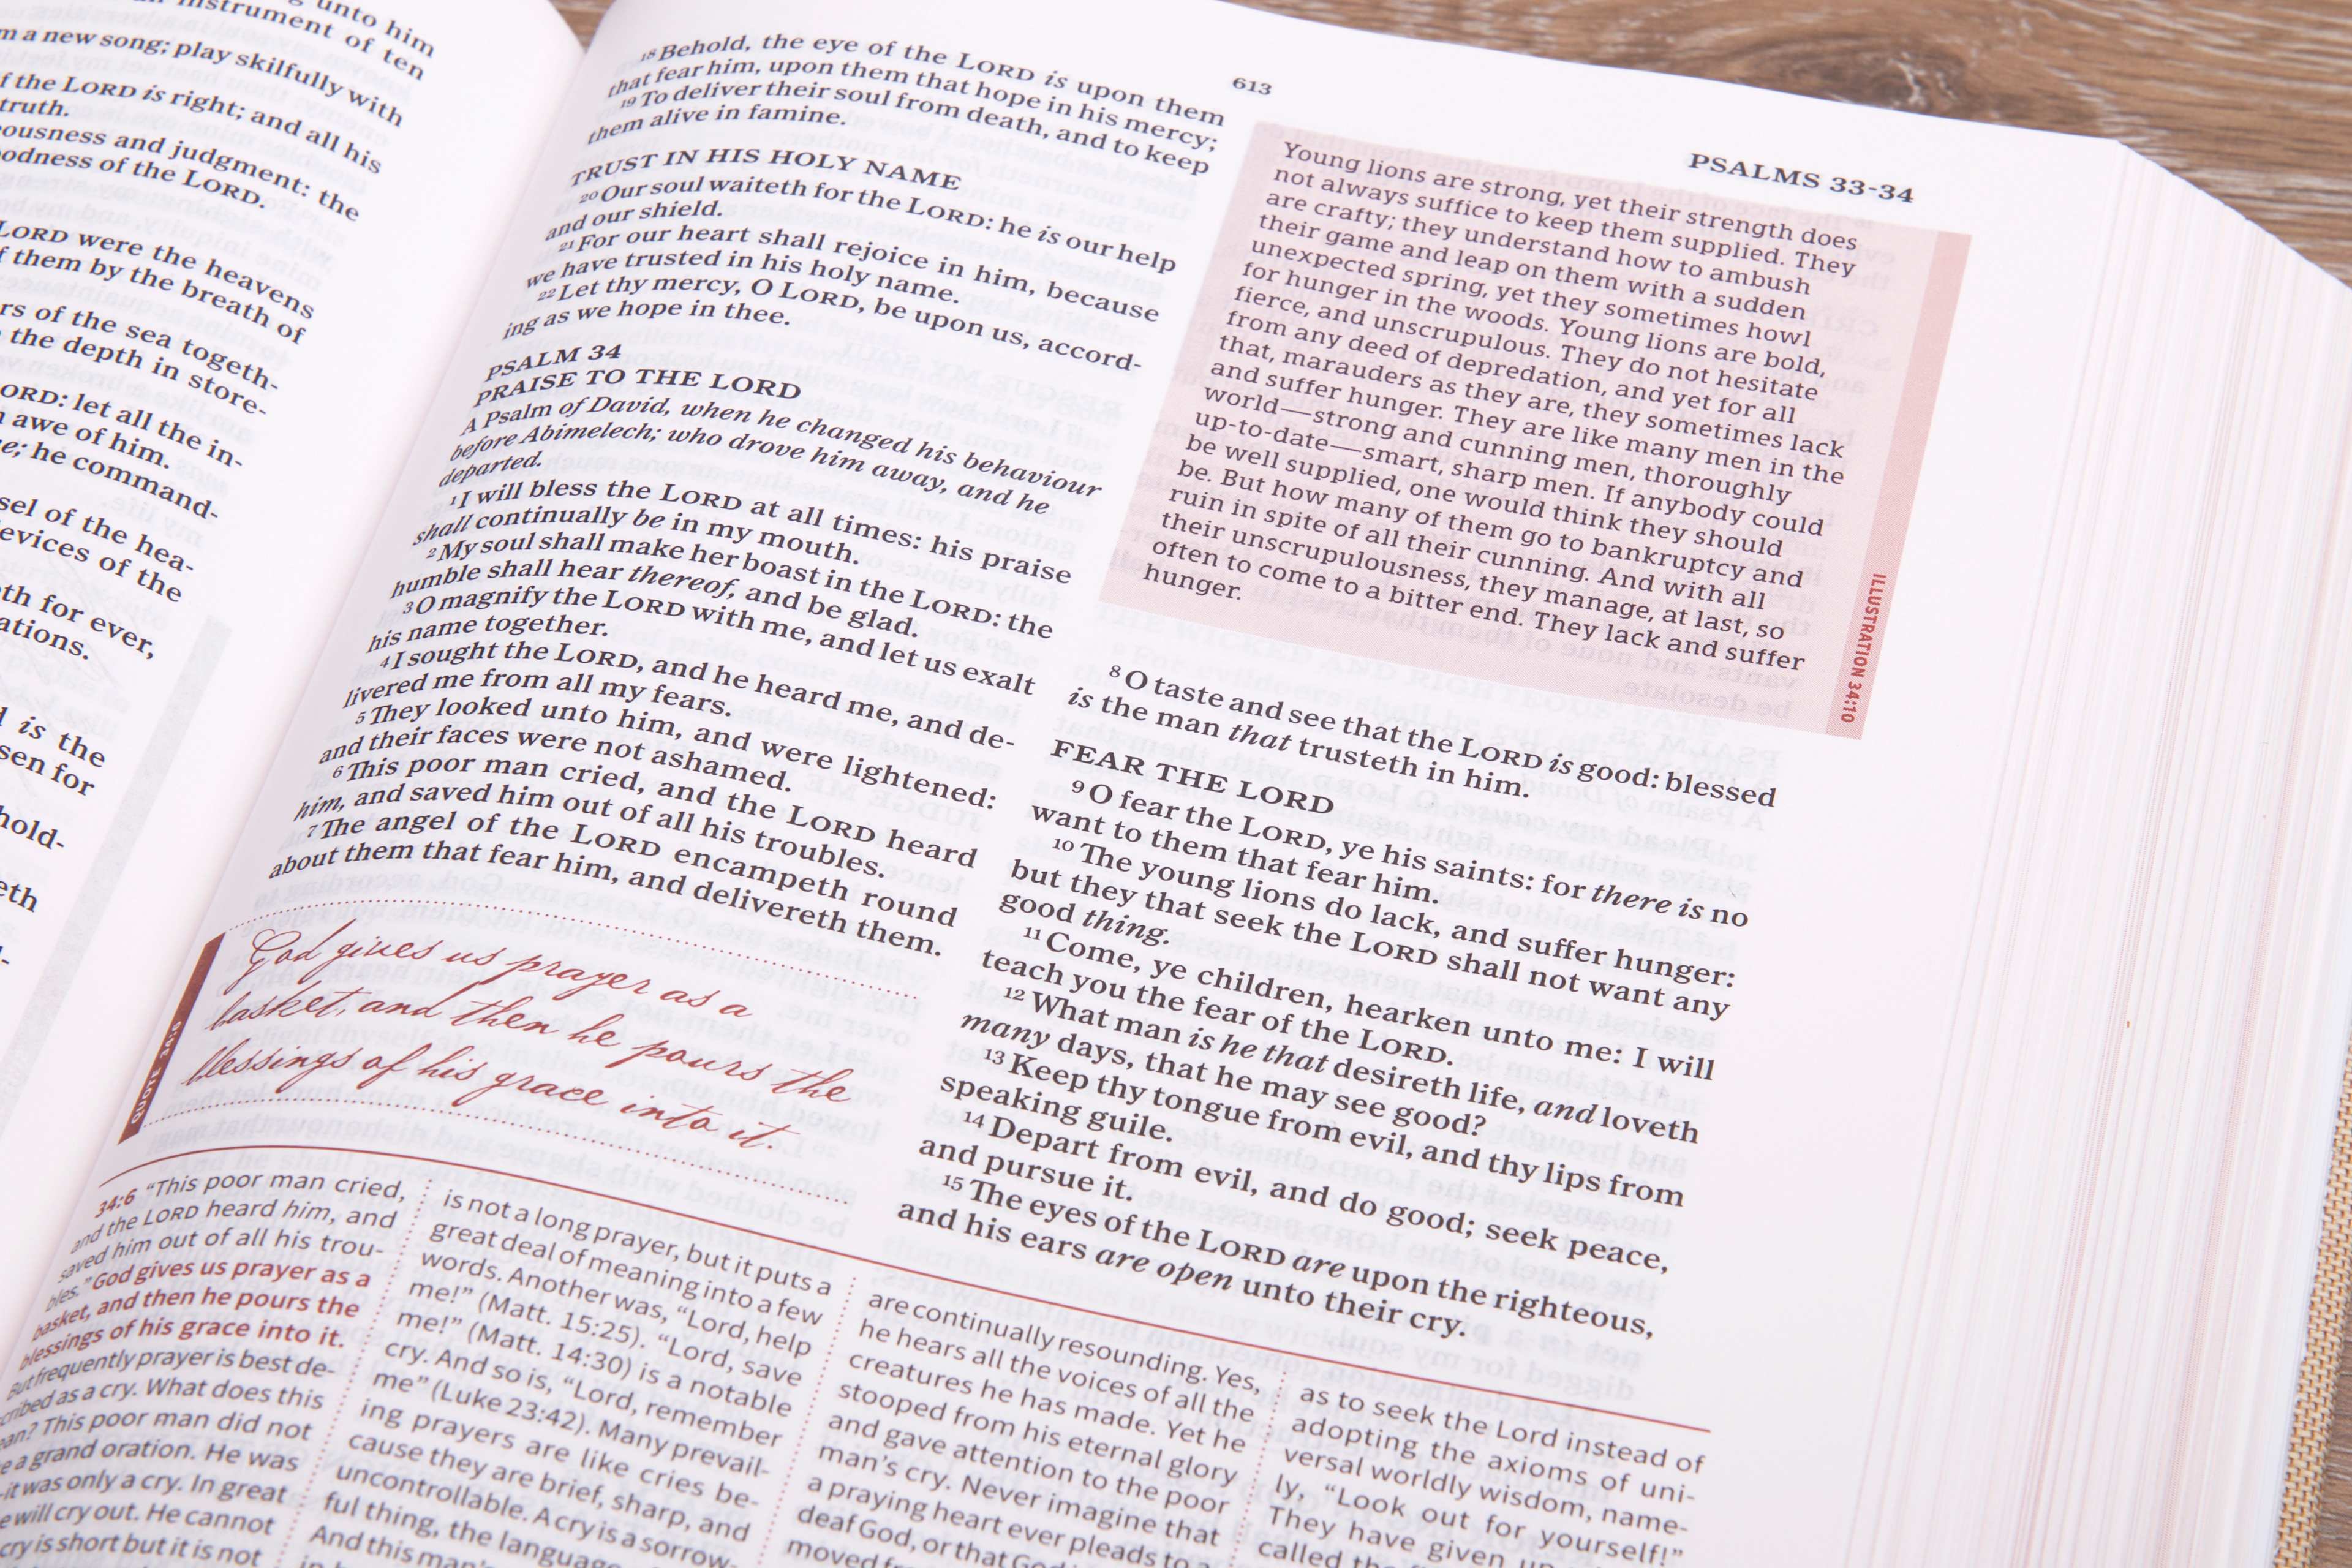 unto him
instrument of ten
a new song; play skilfully with
the LORD is right; and all his
truth.
righteousness and judgment: the
goodness of the LORD.
LORD were the heavens
them by the breath of
of the sea togeth-
the depth in store-
LORD: let all the in-
awe of him.
he command-
of the hea-
devices of the
for ever,
is the
for
613
PSALMS 33-34
18 Behold, the eye of the LORD is upon them
that fear him, upon them that hope in his mercy;
19 To deliver their soul from death, and to keep
them alive in famine.
TRUST IN HIS HOLY NAME
20 Our soul waiteth for the LORD: he is our help
and our shield.
21 For our heart shall rejoice in him, because
we have trusted in his holy name.
22 Let thy mercy, O LORD, be upon us, accord-
ing as we hope in thee.
PSALM 34
PRAISE TO THE LORD
A Psalm of David, when he changed his behaviour
before Abimelech; who drove him away, and he
departed.
1 I will bless the LORD at all times: his praise
shall continually be in my mouth.
2 My soul shall make her boast in the LORD: the
humble shall hear thereof, and be glad.
3 O magnify the LORD with me, and let us exalt
his name together.
4 I sought the LORD, and he heard me, and de-
livered me from all my fears.
5 They looked unto him, and were lightened:
and their faces were not ashamed.
6 This poor man cried, and the LORD heard
him, and saved him out of all his troubles.
7 The angel of the LORD encampeth round
about them that fear him, and delivereth them.
God gives us prayer as a
basket, and then he pours the
blessings of his grace into it.
QUOTE 34:6
Young lions are strong, yet their strength does
not always suffice to keep them supplied. They
are crafty; they understand how to ambush
their game and leap on them with a sudden
unexpected spring, yet they sometimes howl
for hunger in the woods. Young lions are bold,
fierce, and unscrupulous. They do not hesitate
from any deed of depredation, and yet for all
that, marauders as they are, they sometimes lack
and suffer hunger. They are like many men in the
world—strong and cunning men, thoroughly
up-to-date—smart, sharp men. If anybody could
be well supplied, one would think they should
be. But how many of them go to bankruptcy and
ruin in spite of all their cunning. And with all
their unscrupulousness, they manage, at last, so
often to come to a bitter end. They lack and suffer
hunger.
ILLUSTRATION 34:10
8 O taste and see that the LORD is good: blessed
is the man that trusteth in him.
FEAR THE LORD
9 O fear the LORD, ye his saints: for there is no
want to them that fear him.
10 The young lions do lack, and suffer hunger:
but they that seek the LORD shall not want any
good thing.
11 Come, ye children, hearken unto me: I will
teach you the fear of the LORD.
12 What man is he that desireth life, and loveth
many days, that he may see good?
13 Keep thy tongue from evil, and thy lips from
speaking guile.
14 Depart from evil, and do good; seek peace,
and pursue it.
15 The eyes of the LORD are upon the righteous,
and his ears are open unto their cry.
34:6 “This poor man cried,
and the LORD heard him, and
saved him out of all his trou-
bles.” God gives us prayer as a
basket, and then he pours the
blessings of his grace into it.
But frequently prayer is best de-
scribed as a cry. What does this
mean? This poor man did not
a grand oration. He was
it was only a cry. In great
will cry out. He cannot
cry is short but it is not
is not a long prayer, but it puts a
great deal of meaning into a few
words. Another was, “Lord, help
me!” (Matt. 15:25). “Lord, save
me!” (Matt. 14:30) is a notable
cry. And so is, “Lord, remember
me” (Luke 23:42). Many prevail-
ing prayers are like cries be-
cause they are brief, sharp, and
uncontrollable. A cry is a sorrow-
ful thing, the language
And this man's
are continually resounding. Yes,
he hears all the voices of all the
creatures he has made. Yet he
stooped from his eternal glory
and gave attention to the poor
man's cry. Never imagine that
a praying heart ever pleads to a
deaf God, or that God
moved
as to seek the Lord instead of
adopting the axioms of uni-
versal worldly wisdom, name-
ly, “Look out for yourself!”
They have given up
called the